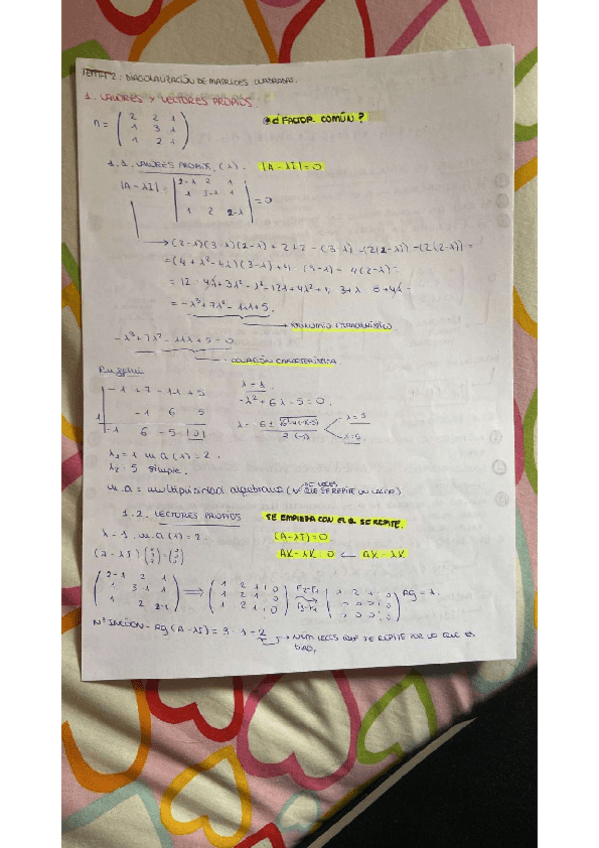 TEMA 2: DIAGONALIZACIÓN DE MATRICES CUADRADAS.
1. VALORES Y VECTORES PROPIOS.
¿FACTOR COMÚN?
2 2 1
1 3 1
1 2 1
1.1. VALORES PROPIOS (λ). |A-λI|=0
|A-λI| = 2-λ 2 1
1 3-λ 1 = 0
1 2 2-λ
(2-λ)(3-λ)(2-λ)+2+2-(3-λ)-(2(2-λ))-(2(2-λ))=
=(4+λ²-4λ)(3-λ)+4-(3-λ)-4(2-λ)=
= -λ³+7λ²-11λ+5.
POLINOMIO CARACTERÍSTICO
-λ³+7λ²-11λ+5=0
ECUACIÓN CARACTERÍSTICA
Ruffini
-1 +7 -11 +5
1 -1 6 5
-1 6 -5 |0|
λ=1
-λ²+6λ-5=0.
λ=5
λ₁=1 m.a(1)=2.
λ₂=5 simple.
m.a = multiplicidad algebraica (Nº DE VECES QUE SE REPITE UN VALOR)
1.2. VECTORES PROPIOS SE EMPIEZA CON EL QUE SE REPITE.
λ=1, m.a(1)=2. (A-λI)=0
(A-λI) AX-λX=0 ← AX=λX
2-1 2 1
1 3-1 1
1 2 2-1
⇒
1 2 1 : 0
1 2 1 : 0
1 2 1 : 0
F2-F1
F3-F1
1 2 1 : 0
0 0 0 : 0
0 0 0 : 0
Rg=1.
Nº INCÓGN - Rg(A-λI) = 3-1=2
→ NÚM VECES QUE SE REPITE POR LO QUE ES DIAG.